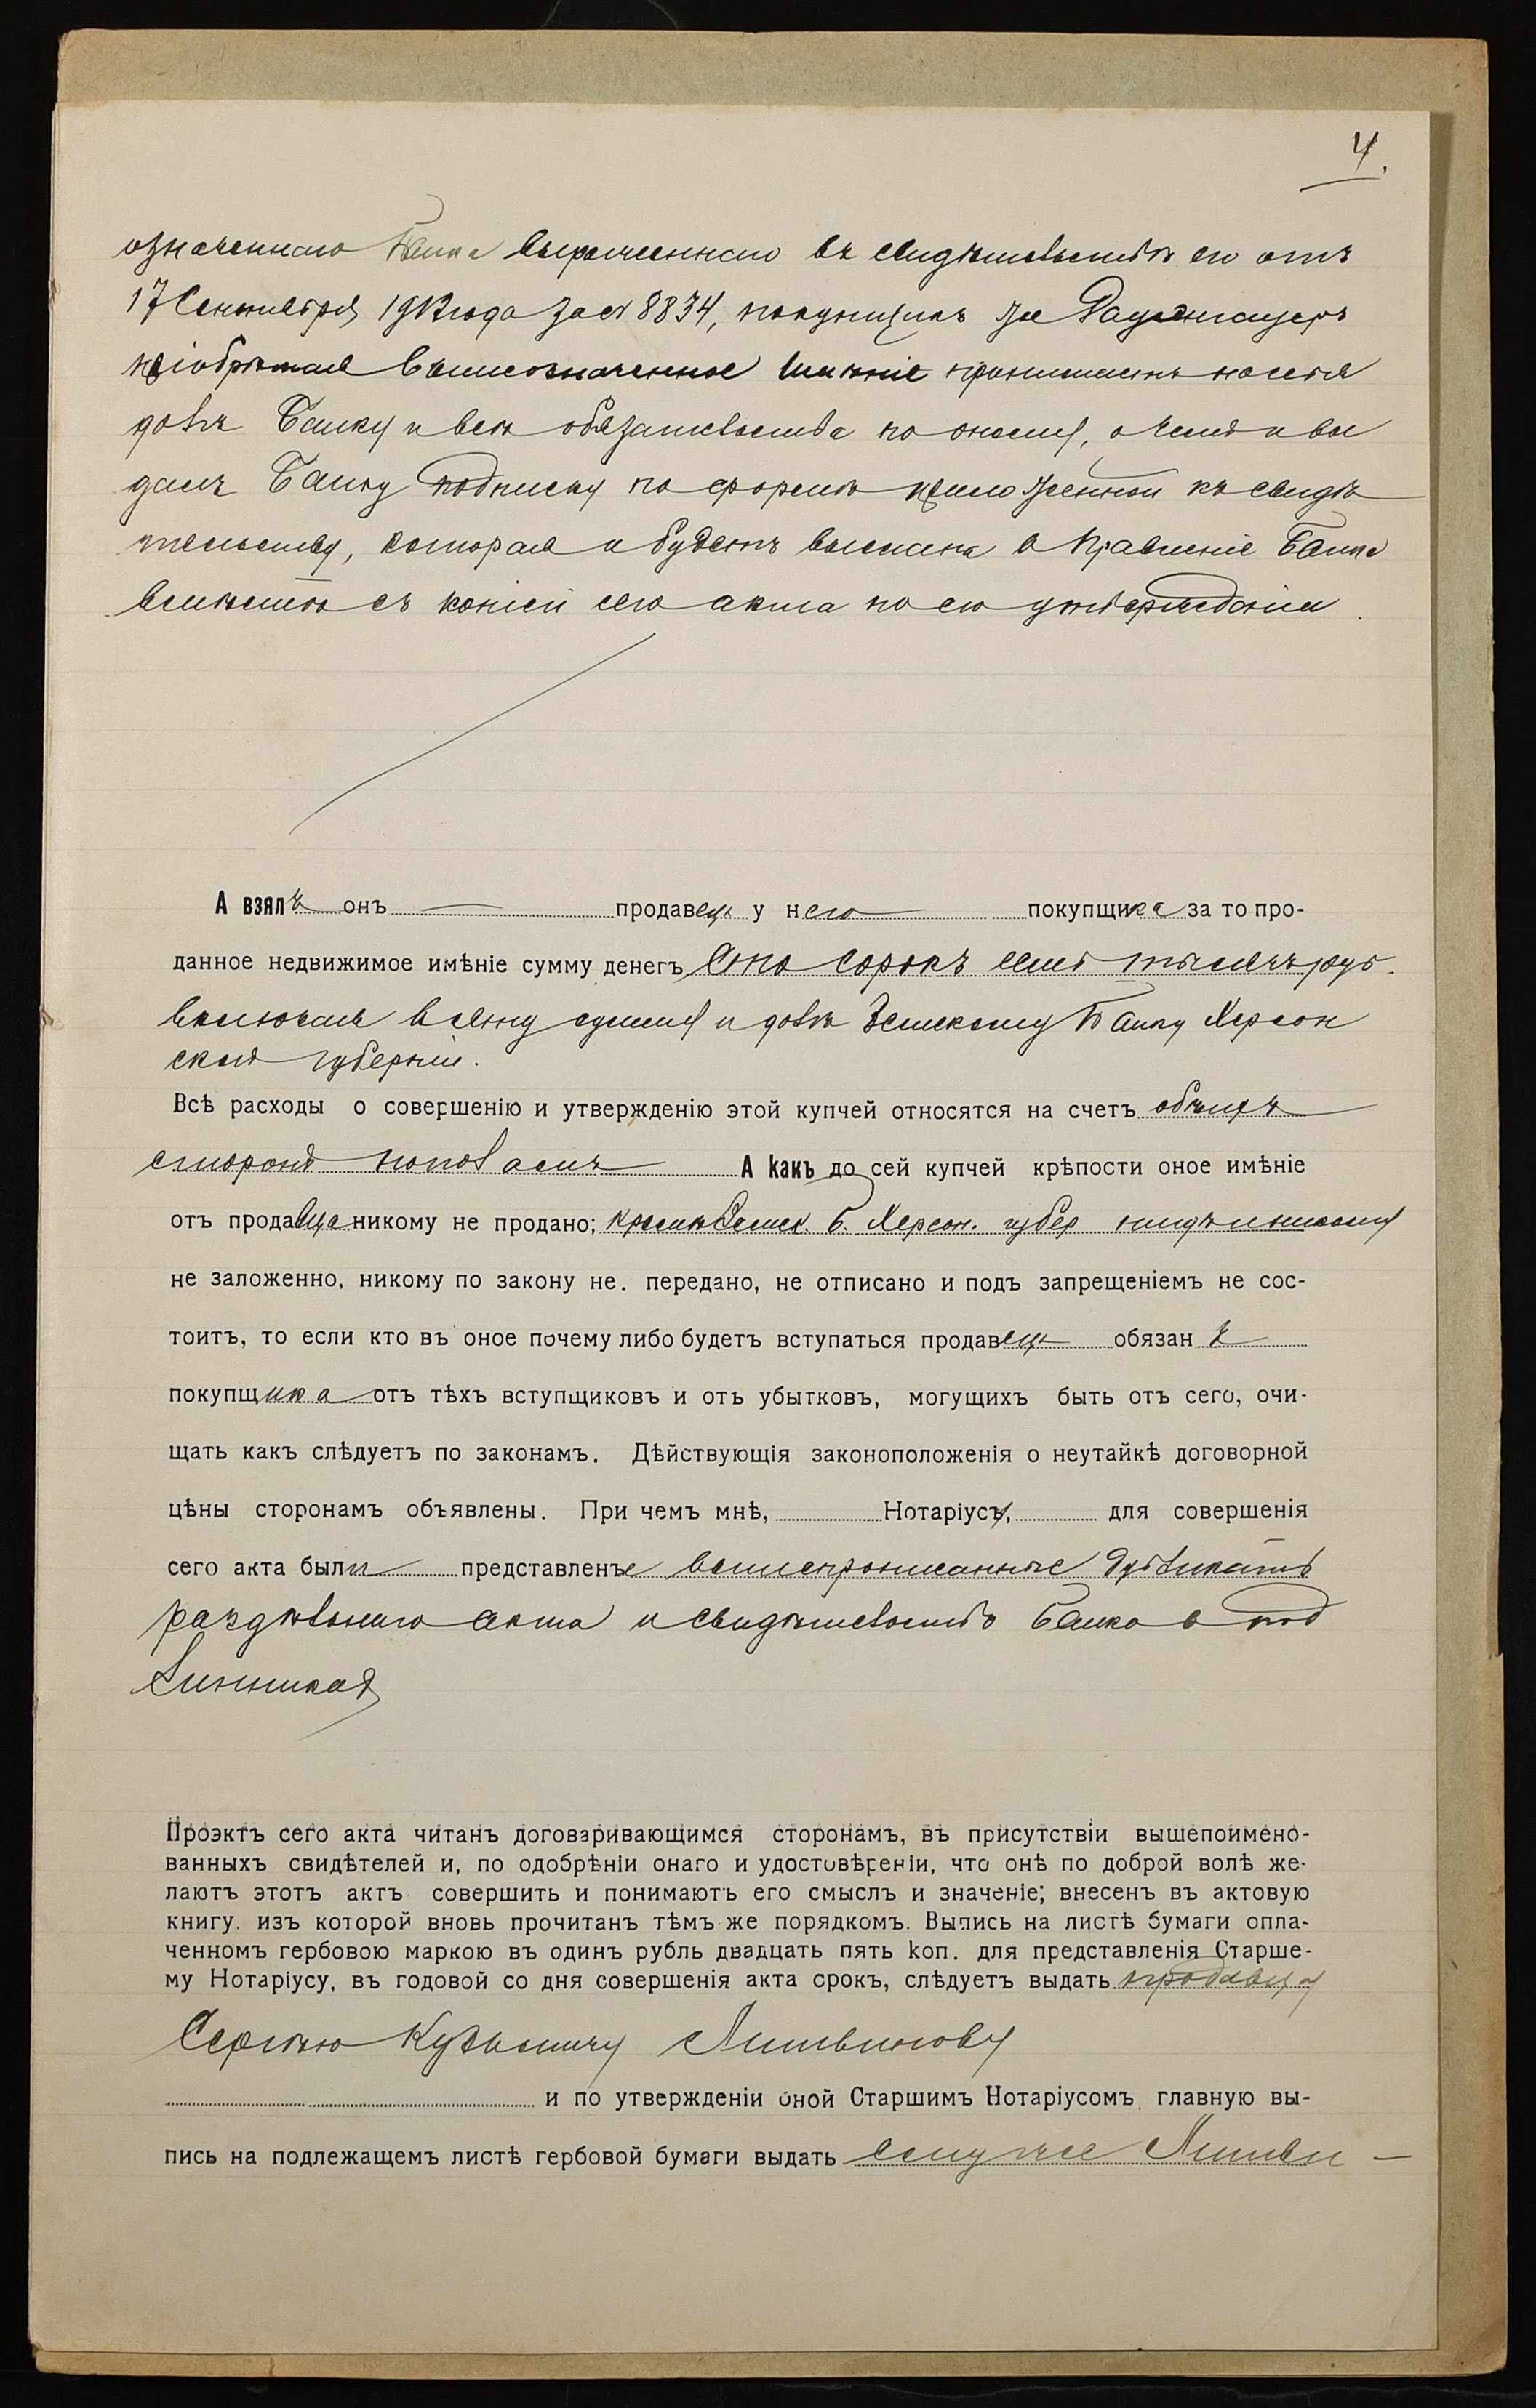 4.
означеннаго Банка выраженнаго въ свидѣтельствѣ его отъ
17 Сентября 1912 года за № 8834, покупщикъ же
пріобрѣтая вышеозначенное имѣніе принимаетъ на себя
долгъ Банку и всѣ обязательства по оному, о чемъ и вы
далъ Банку подписку по формѣ приложенной къ свидѣ
тельству, которая и будетъ выслана в Правленіе Банка
вмѣстѣ съ копіей сего акта по его утвержденіи.
А взялъ онъ — продавецъ у него покупщика за то про-
данное недвижимое имѣніе сумму денегъ Сто сорокъ семь тысячъ руб.
включая в сѣю сумму и долгъ Земскому Банку Херсон
ской губерніи.
Всѣ расходы о совершенію и утвержденію этой купчей относятся на счетъ обѣихъ
сторонъ пополамъ А какъ до сей купчей крѣпости оное имѣніе
отъ продавца никому не продано; кромѣ Земск. Б. Херсон. губер
не заложенно, никому по закону не. передано, не отписано и подъ запрещеніемъ не сос-
тоитъ, то если кто въ оное почему либо будетъ вступаться продавецъ обязан ъ
покупщика отъ тѣхъ вступщиковъ и отъ убытковъ, могущихъ быть отъ сего, очи-
щать какъ слѣдуетъ по законамъ. Дѣйствующія законоположенія о неутайкѣ договорной
цѣны сторонамъ объявлены. При чемъ мнѣ, Нотаріусу, для совершенія
сего акта были представлены вышепрописанные дубликатъ
раздѣльнаго акта и свидѣтельство Банка в под
линникахъ
Проэктъ сего акта читанъ договаривающимся сторонамъ, въ присутствіи вышепоимено-
ванныхъ свидѣтелей и, по одобрѣніи онаго и удостовѣреніи, что онѣ по доброй волѣ же-
лаютъ этотъ актъ совершить и понимаютъ его смыслъ и значеніе; внесенъ въ актовую
книгу. изъ которой вновь прочитанъ тѣмъ же порядкомъ. Выпись на листѣ бумаги опла-
ченномъ гербовою маркою въ одинъ рубль двадцать пять коп. для представленія Старше-
му Нотаріусу, въ годовой со дня совершенія акта срокъ, слѣдуетъ выдать продавцу
Сергѣю Кузьмичу Литвинову
и по утвержденіи оной Старшимъ Нотаріусомъ главную вы-
пись на подлежащемъ листѣ гербовой бумаги выдать ему же Литви-